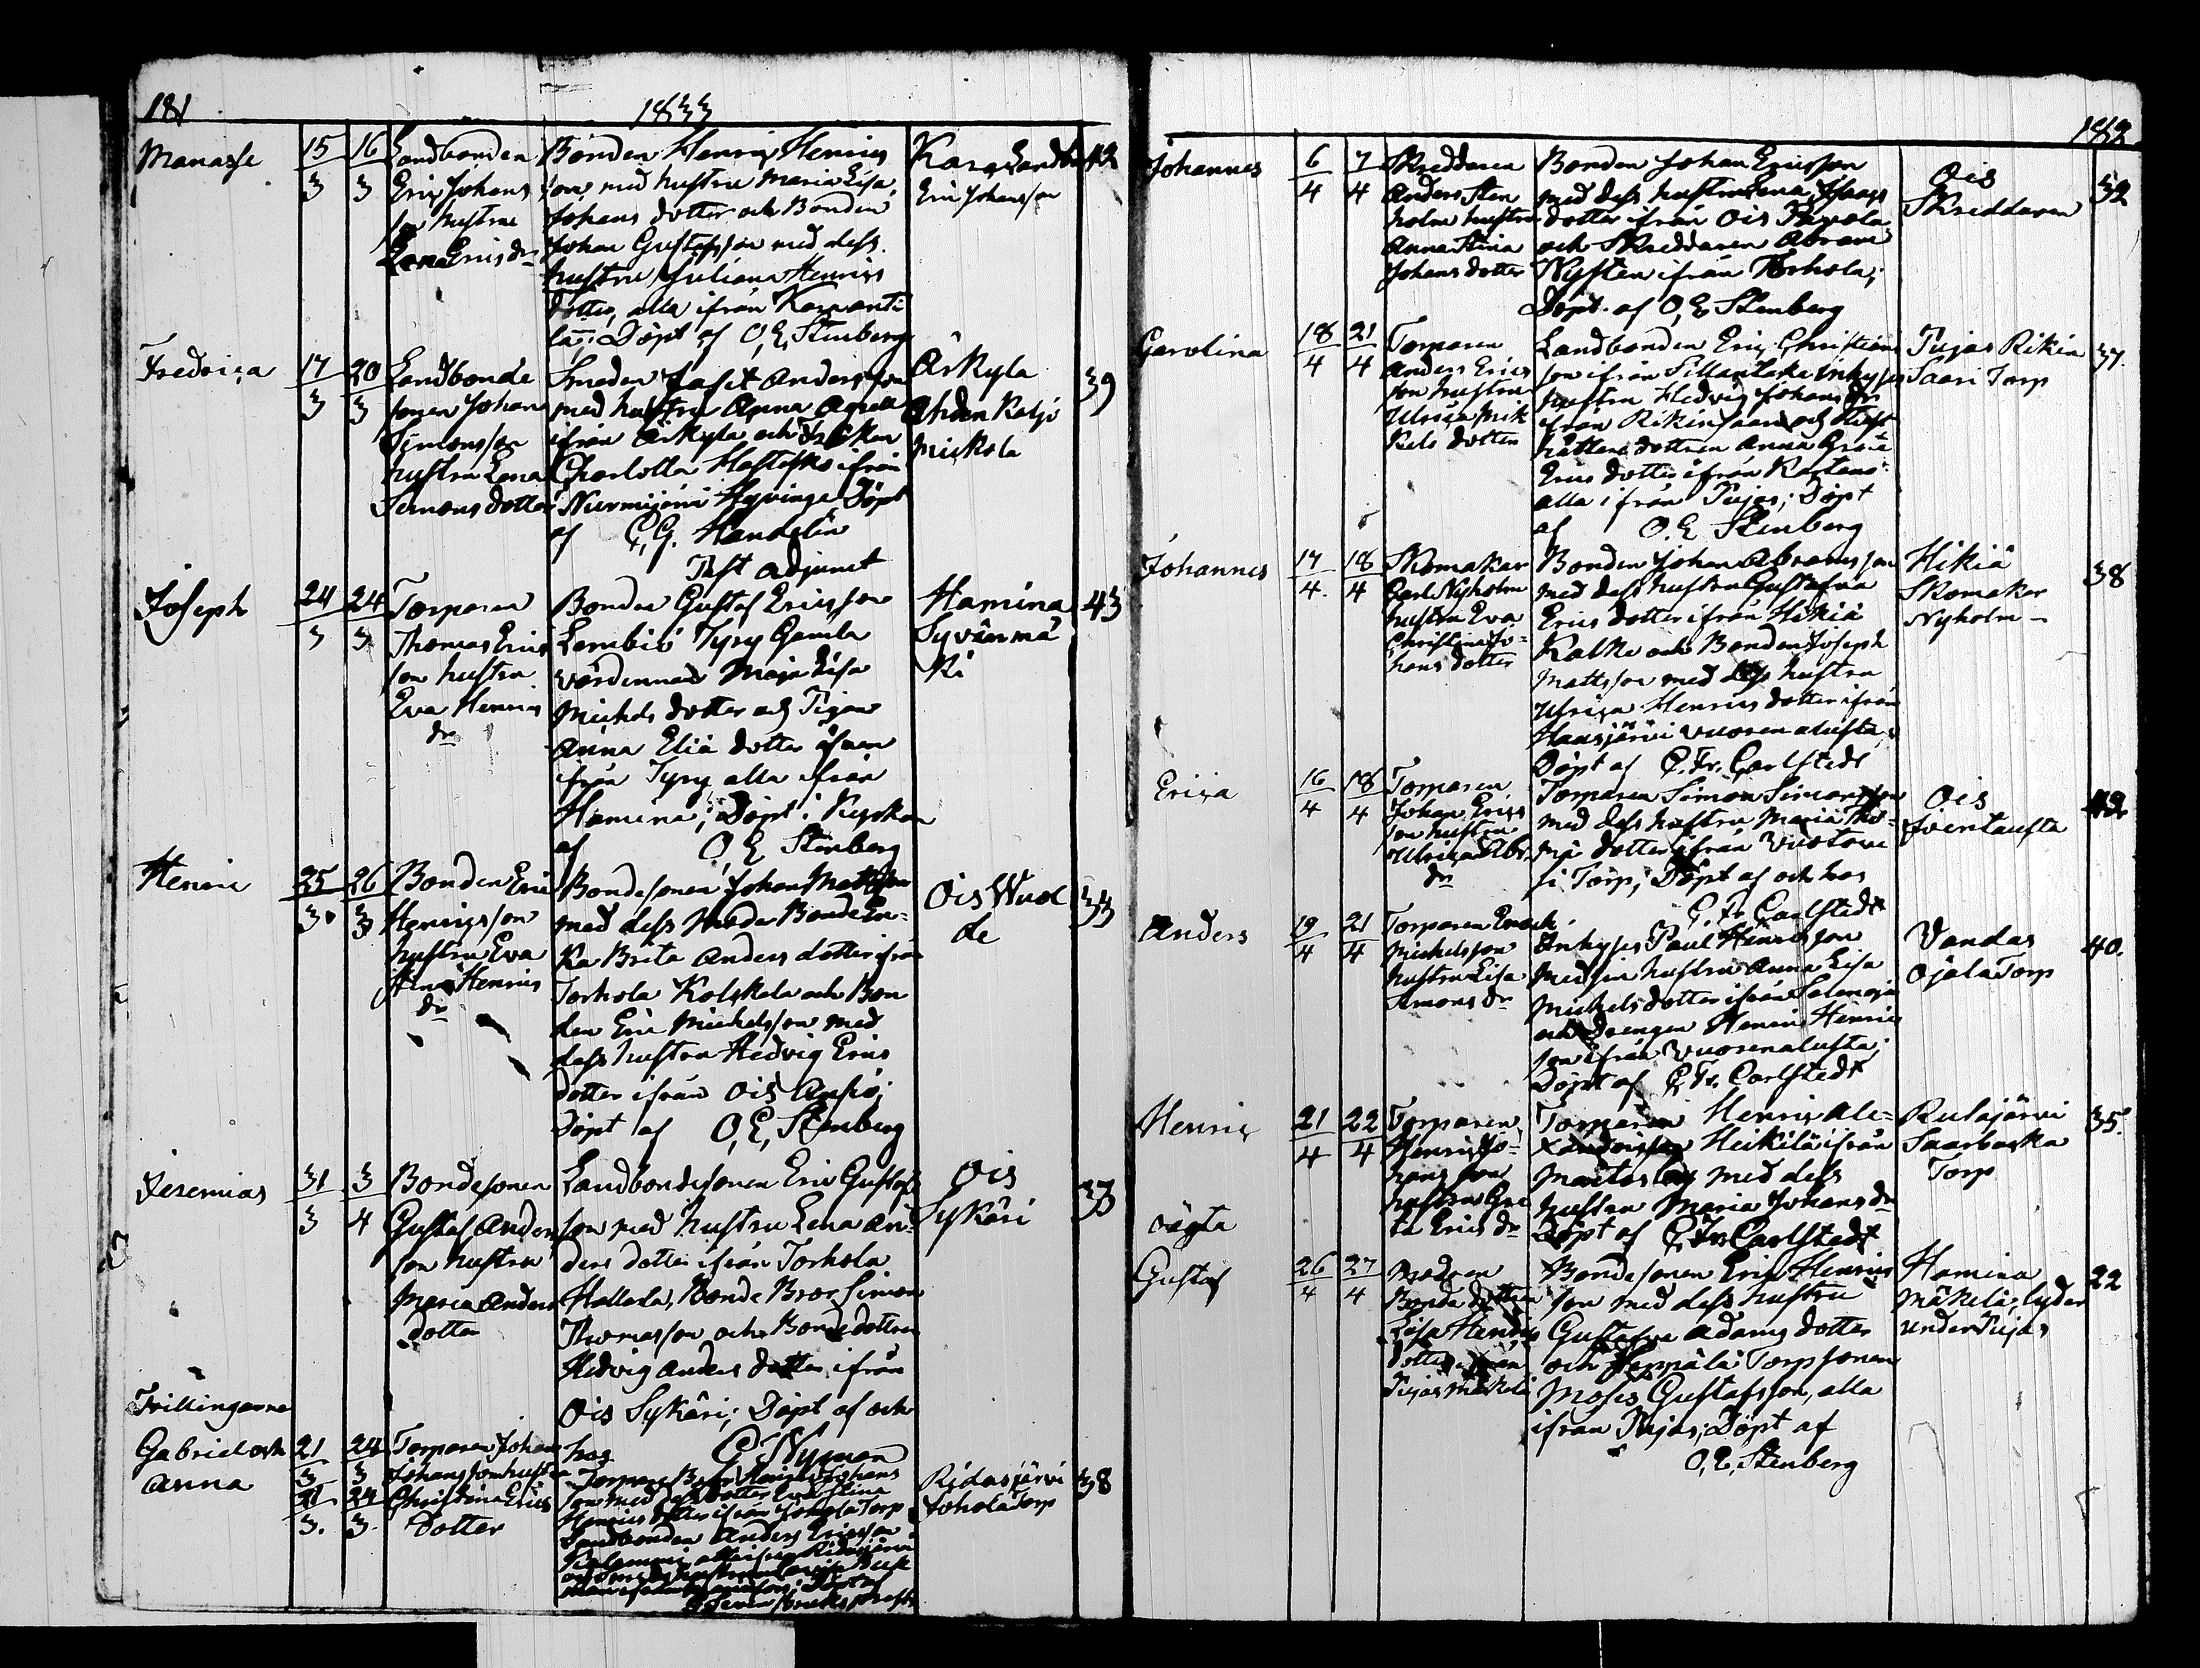 181
1833
Manasse
15 16
3 3
Landbonden
Eric Johans
son hustru
Lena Erics dr
Bonden Henric Henrics
son med hustru Maria Lisa
Johans dotter och Bonden
Johan Gustafsson med dess
hustru Juliana Henrics
dotter, alla ifrån Karaanti
la; Döpt af O. E. Stenberg
Kara Landtb
Eric Johansson
42
Fredrica
17 20
3 3
Landbonde
sonen Johan
Simonsson
hustru Lena
Simons dotter
Smeden Andersson
med hustru Anna
ifrån Ärkylä och Fröken
Charlotta Hästesko ifrån
Hyvinge Döpt
af C. G. Handelin
Past adjunct
Ärkylä
Mickola
39
Joseph
24 24
3 3
Torparen
Thomas Erics
son hustru
Eva Henrics
dr
Bonden Gustaf Ericsson
Lembiö Tyry Gamla
värdinnan Maja Lisa
Michels dotter och Pigan
Anna Eliä dotter äfven
ifrån Tyry alla ifrån
Hamina; Döpt i Kyrkan
af O. E. Stenberg
Hamina
Syvänmä
ki
43
Henric
25 26
3 3
Bonden Eric
Henricsson
hustru Eva
Henrics
dr
Bondesonen Johan Mattsson
med dess Moder Bonde En-
ka Brita Anders dotter ifrån
Torhola Kolskala och Bon
den Eric Michelsson med
dess hustru Hedvig Erics
dotter ifrån Ois Ansiö;
Döpt af O. E. Stenberg
Ois Wuol
de
33
Jeremias
31 3
3 4
Bondesonen
Gustaf Anders
son hustru
Maria Anders
dotter
Landbondesonen Eric Gustafs
son med hustru Lena An-
ders dotter ifrån Torhola
Hallala, Bonde Bror Simon
Thomasson och Bondedottren
Hedvig Anders dotter ifrån
Ois Sykäri; Döpt af och
hos C. Nyman
Ois
Sykäri
33
Tvillingarne
Gabriel och
Anna
21 24
3 3
21 24
3. 3.
Torparen Johan
Johansson hustru
Christina Erics
Dotter
Torpare Bror Johans
son med
Henrics dotter ifrån Torp
Landbonden Anders Ericsson
Ridasjärvi
Torp
38
182
Johannes
6 7
4 4
Skreddaren
Anders Sten
holm hustru
Anna Stina
Johans dotter
Bonden Johan Ericsson
med dess hustru Lena Isaacs
dotter ifrån Ois
och Skreddaren Abram
Nysten ifrån Torhola;
Döpt af O. E. Stenberg
Ois
Skreddaren
32
Carolina
18 21
4 4
Torparen
Anders Erics
son hustru
Ulrica Mik
kels dotter
Landbonden Eric Christians
son ifrån Sillanlaka Inhyses
hustru Hedvig Johans dr
ifrån Rikinsaari och Häst
hållare dottren Anna Greta
Erics dotter ifrån
alla ifrån Pujas; Döpt
af O. E. Stenberg
Pujas Rikin
Saari Torp
37.
Johannes
17 18
4. 4
Skomakar
Carl Nyholm
hustru Eva
Christina Jo-
hans dotter
Bonden Johan Abramsson
med dess hustru Gustafva
Erics dotter ifrån Hikiä
Kalko och Bonden Joseph
Mattsson med dess hustru
Ulrica Henrics dotter ifrån
Hausjärvi Wuorenalusta,
Döpt af C. Fr. Carlstedt
Hikiä
Skomakar
Nyholm –
38
Erica
16 18
4 4
Torparen
Johan Erics
son hustru
Ulrica Abr.
dr
Torparen Simon Simonsson
med dess hustru Maria Tho-
mä dotter ifrån
Torp; Döpt af och hos
C. Fr. Carlstedt
Ois
42
Anders
19 21
4 4
Torparen Enoch
Michelsson
hustru Lisa
Simons dr
Inhyses Paul Henricsson
med sin hustru Anna Lisa
Michelsdotter ifrån Salanoja
och Drengen Henric Henrics
son ifrån Wuorenalusta;
Döpt af C. Fr. Carlstedt
Vandas
Ojala Torp
40.
Henric
21 22
4 4
Torparen
Henric Jo-
hansson
hustru Gre
ta Erics dr
Torparen Henric Ale-
xandersson Heikilä ifrån
med dess
hustru Maria Johans dr
Döpt af C. Fr. Carlstedt
Rutajärvi
Torp
35.
oägta
Gustaf
26 27
4 4
Modren
Bonde dottren
Lisa Henrics
dotter ifrån
Pujas Mäkelä
Bondesonen Eric Henrics
son med dess hustru
Gustafva Adams dotter
och Torpsonen
Moses Gustafsson, alla
ifrån Pujas; Döpt af
O. E. Stenberg
Hamina
Mäkelä, lyder
under Pujas
22